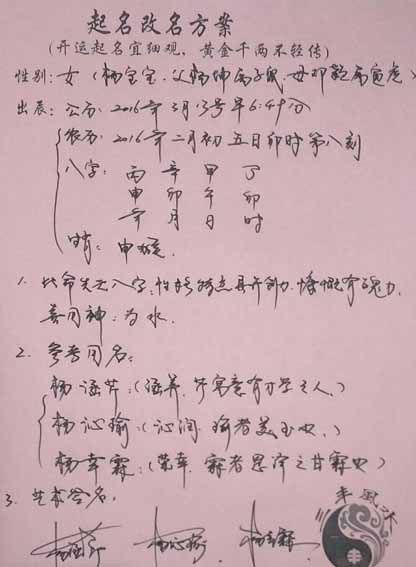 起名改名方案
(开运起名宜细观，黄金千两不轻传)
性别：女（杨宝宝，父杨坤属子鼠，母邓 属寅虎）
出辰：公历：2016年3月13号早6:49分
农历：2016年二月初五日卯时第八刻
八字：丙 辛 甲 丁
申 卯 午 卯
年 月 日 时
肖：申猴
1. 此命先天八字，性好特点具开创力，慷慨有魄力，
喜用神：为水．
2. 参考用名：
杨涵芹：(涵养，芹寓意有才学之人．)
杨沁瑜：(沁润，瑜者美玉也．)
杨幸霖：(荣幸，霖者恩泽之甘霖也)
3. 艺术签名：
杨涵芹 杨沁瑜 杨幸霖